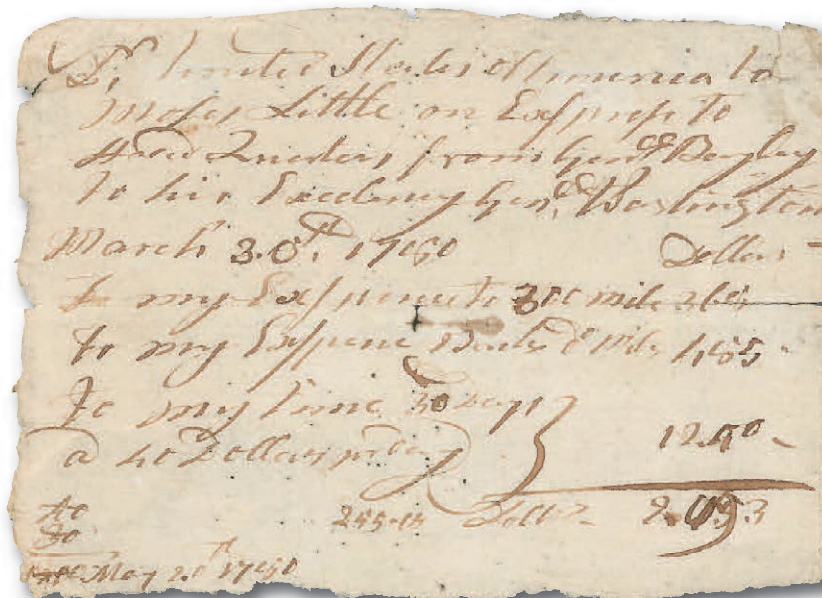 Dr United States of America to
Moses Little on Express to
Head Quarters from Genl Bayley
to his Excelency Genl Washington
March 30th 1780 Dollars
To my Expence to 300 mile
to my Expence Back Do Mile
To my time 30 Days
a 40 Dollars pr Day 1200
40
30
1200 May 20th 1780